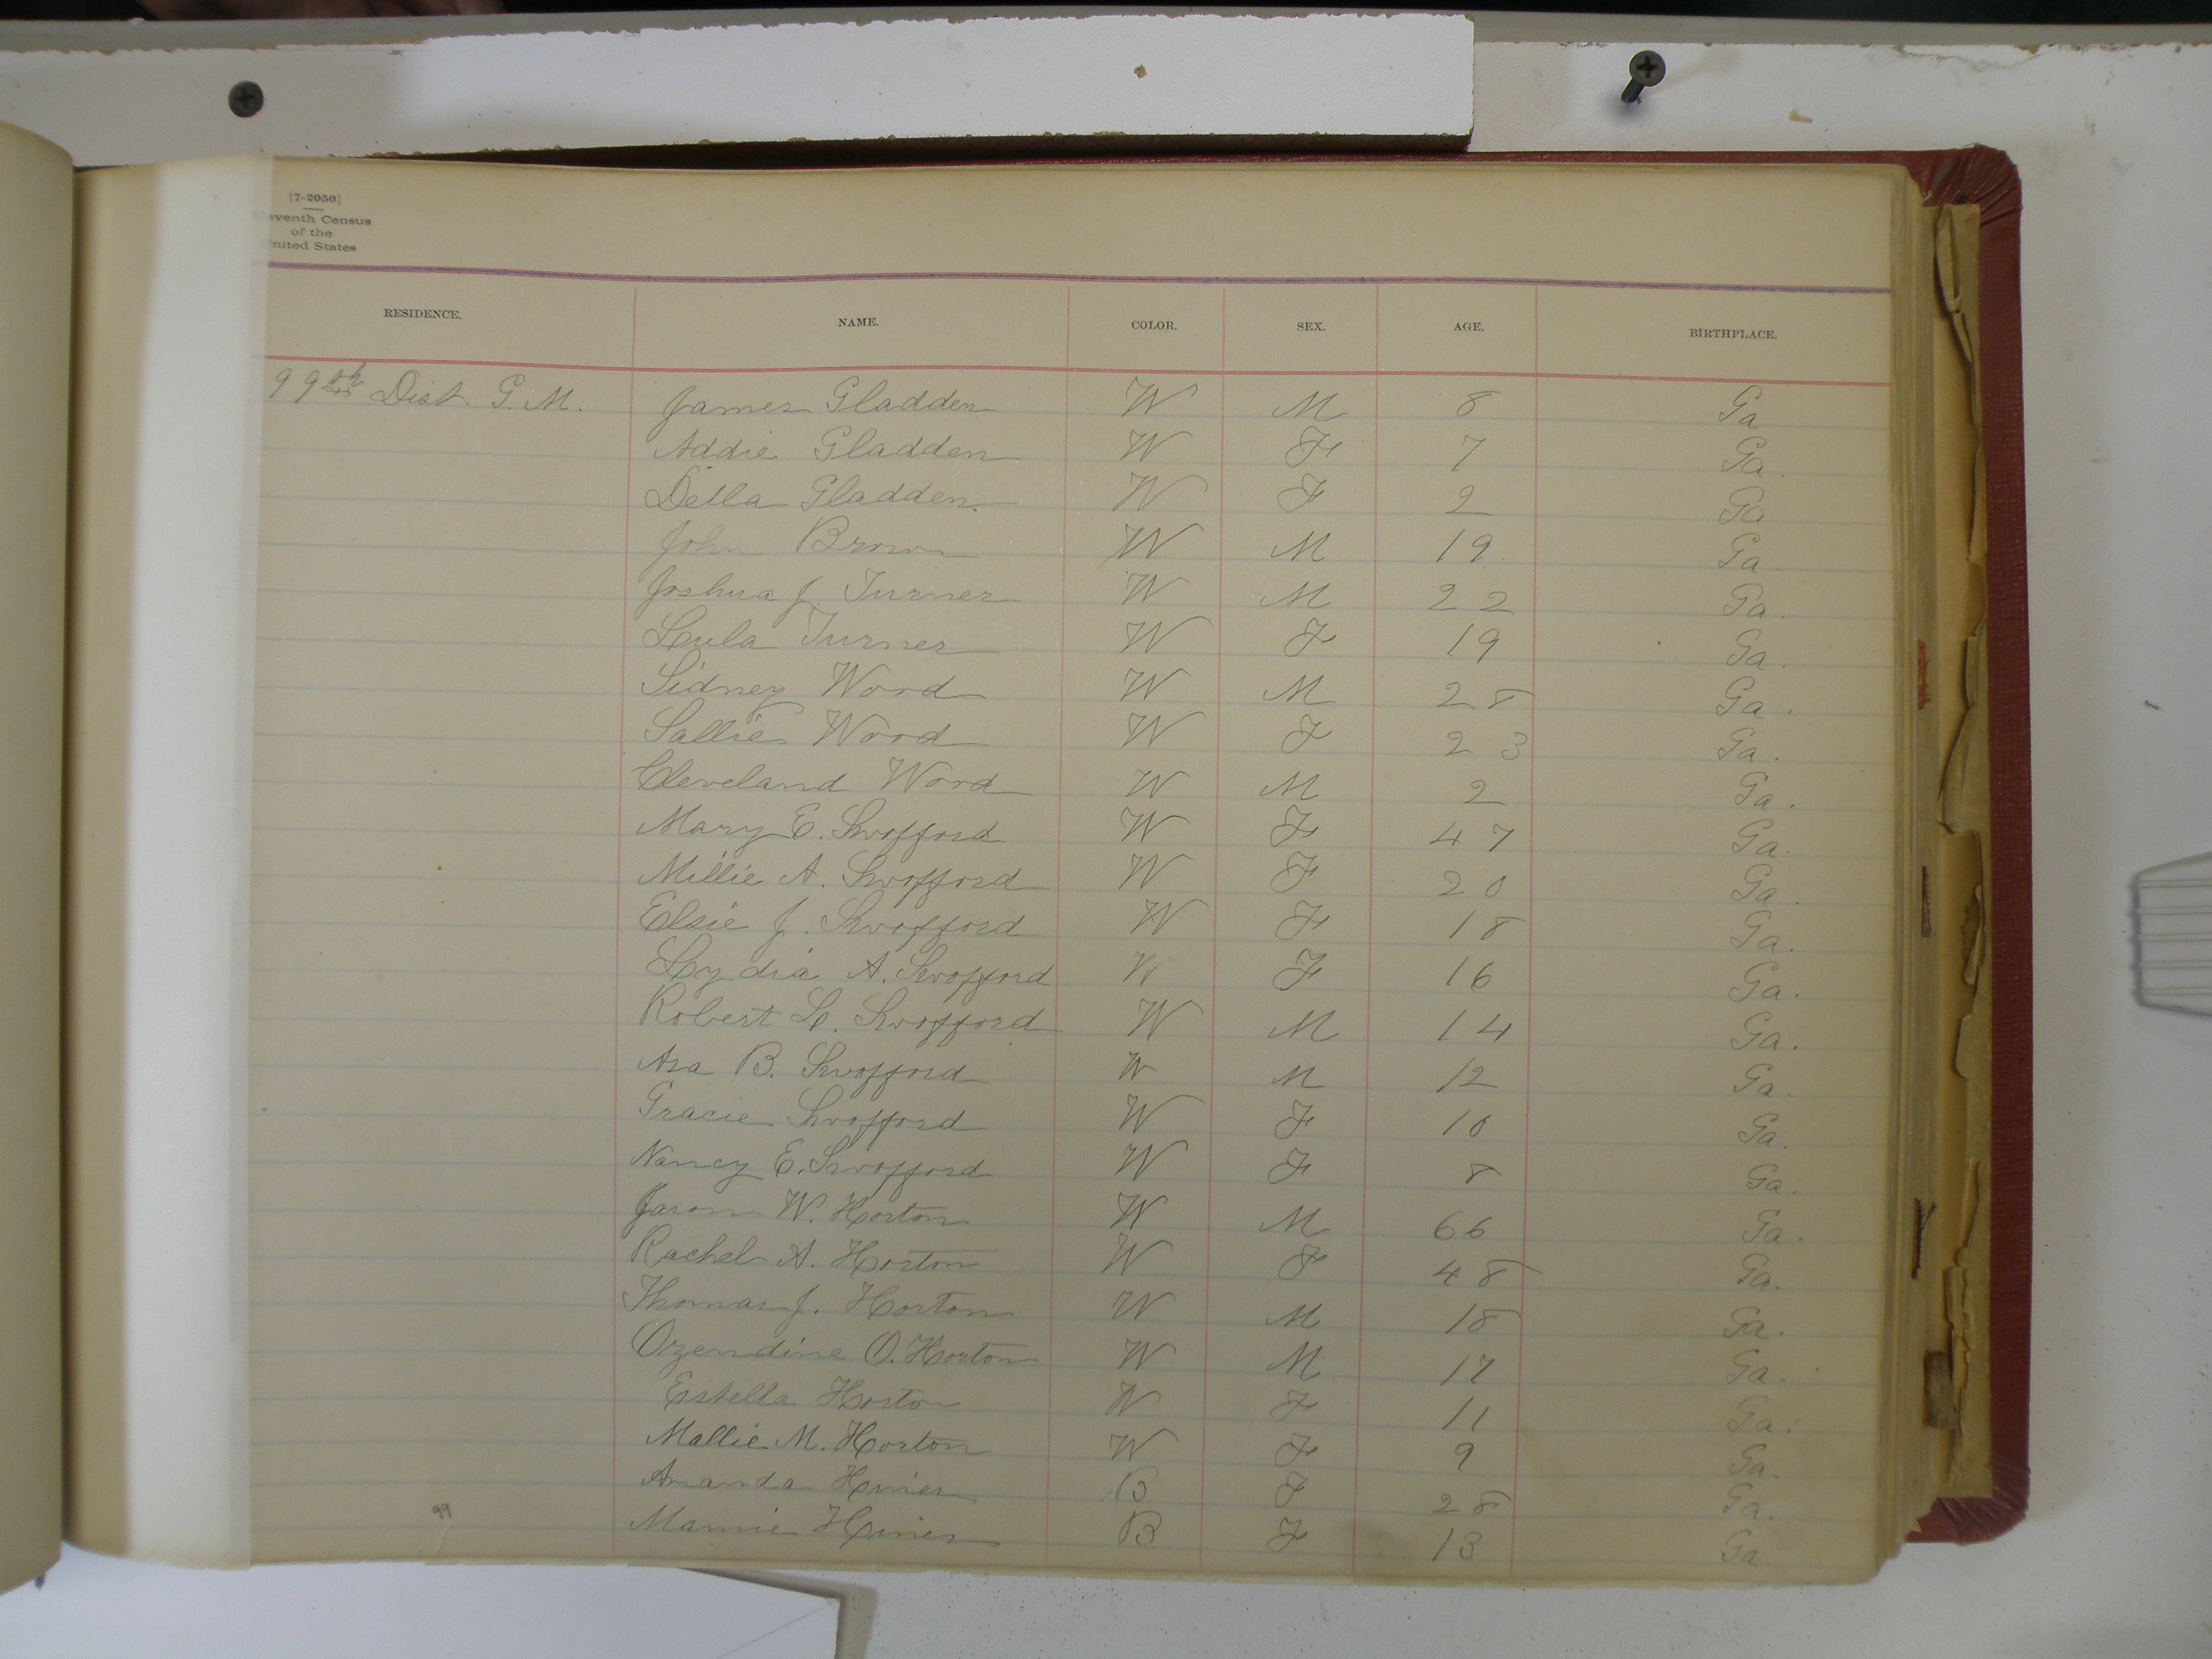 [7-2050]
venth Census
of the
nited States
RESIDENCE. NAME. COLOR. SEX. AGE. BIRTHPLACE.
99th Dist. G. M. James Gladden W M 8 Ga
Addie Gladden W F 7 Ga.
Della Gladden. W F 2 Ga
John Brown W M 19. Ga
Joshua J. Turner W M 22 Ga.
Lula Turner W F 19 Ga.
Sidney Word W M 28 Ga.
Sallie Word W F 23 Ga.
Cleveland Word W M 2 Ga.
Mary E. Swofford W F 47 Ga.
Millie A. Swofford W F 20 Ga.
Elsie J. Swofford W F 18 Ga.
Lydia A. Swofford W F 16 Ga.
Robert L. Swofford W M 14 Ga.
Asa B. Swofford W M 12 Ga
Gracie Swofford W F 10 Ga.
Nancy E. Swofford W F 8 Ga.
Jason W. Horton W M 66 Ga.
Rachel A. Horton W F 48 Ga.
Thomas J. Horton W M 18 Ga.
Ozendine O. Horton W M 17 Ga.
Estella Horton W F 11 Ga.
Mallie M. Horton W F 9 Ga.
Amanda Hines B F 28 Ga.
Mamie Hines B F 13 Ga
99